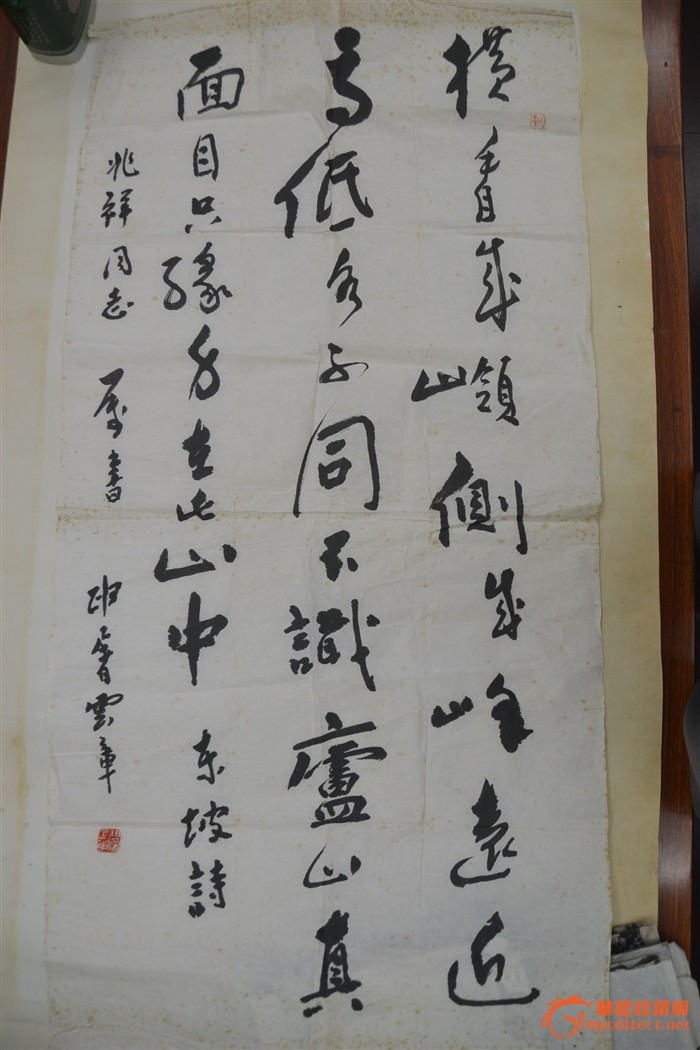 横看成嶺側成峰遠近
高低各不同不識廬山真
面目只緣身在此山中 东坡詩
兆祥同志 属書 雲章
華夏收藏網
mycollect.net